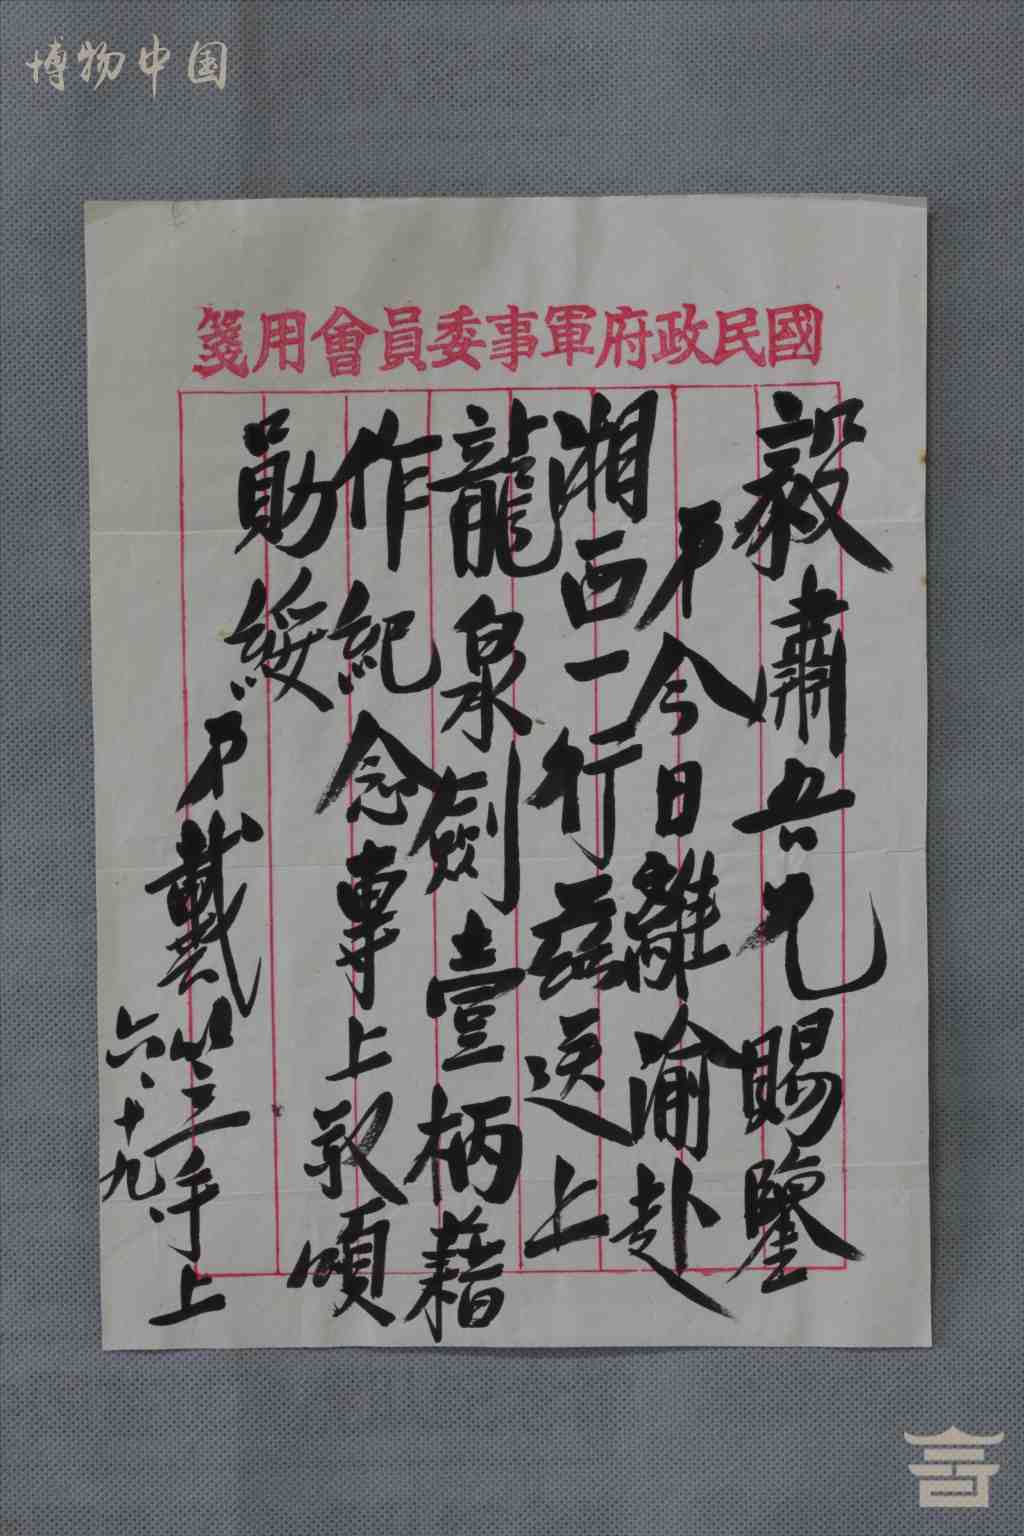 博物中国
國民政府軍事委員會用箋
毅肅吾兄賜鑒
弟今日離渝赴
湘西一行茲送上
龍泉劍壹柄藉
作紀念專上敬頌
勛綏
弟戴笠手上
六、十九、